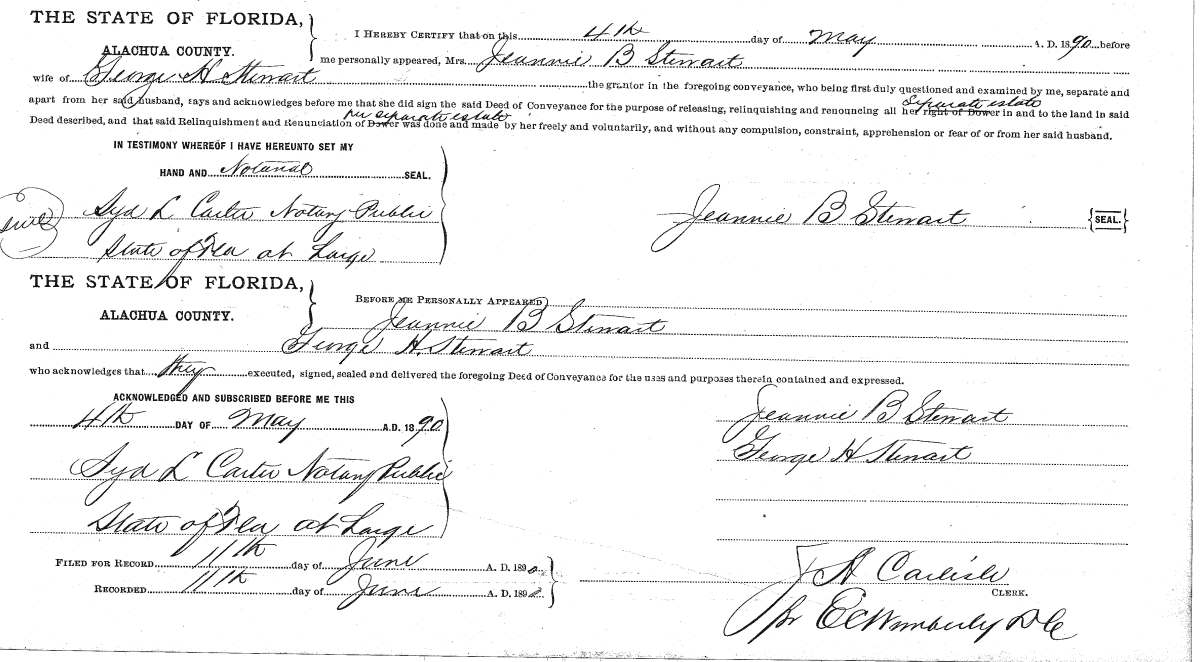 THE STATE OF FLORIDA,
ALACHUA COUNTY.
I HEREBY CERTIFY that on this 4th day of May A. D. 1890 before
me personally appeared, Mrs. Jeannie B Stewart
wife of George H Stewart the grantor in the foregoing conveyance, who being first duly questioned and examined by me, separate and
separate estate
apart from her said husband, says and acknowledges before me that she did sign the said Deed of Conveyance for the purpose of releasing, relinquishing and renouncing all her right of Dower in and to the land in said
her separate estate
Deed described, and that said Relinquishment and Renunciation of Dower was done and made by her freely and voluntarily, and without any compulsion, constraint, apprehension or fear of or from her said husband.
IN TESTIMONY WHEREOF I HAVE HEREUNTO SET MY
HAND AND Notarial SEAL.
Syd L Carter Notary Public
State of Fla at Large
Jeannie B Stewart {SEAL.}
THE STATE OF FLORIDA,
ALACHUA COUNTY.
BEFORE ME PERSONALLY APPEARED
Jeannie B Stewart
and George H. Stewart
who acknowledges that they executed, signed, sealed and delivered the foregoing Deed of Conveyance for the uses and purposes therein contained and expressed.
ACKNOWLEDGED AND SUBSCRIBED BEFORE ME THIS
4th DAY OF May A.D. 1890
Syd L Carter Notary Public
State of Fla at Large
Jeannie B Stewart
George H Stewart
FILED FOR RECORD 11th day of June A. D. 1890
RECORDED 11th day of June A. D. 189
J A Carlisle
CLERK.
pr E C Wimberly D C